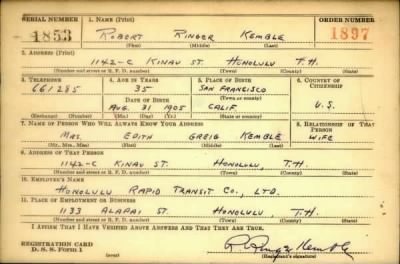 SERIAL NUMBER 1. NAME (Print) ORDER NUMBER
1853 ROBERT RINGER KEMBLE 1897
(First) (Middle) (Last)
2. ADDRESS (Print)
1142-C KINAU ST. HONOLULU T.H.
(Number and street or R. F. D. number) (Town) (County) (State)
3. TELEPHONE 4. AGE IN YEARS 5. PLACE OF BIRTH 6. COUNTRY OF CITIZENSHIP
661285 35 SAN FRANCISCO
DATE OF BIRTH (Town or county)
AUG. 31 1905 CALIF U.S.
(Exchange) (Number) (Mo.) (Day) (Yr.) (State or country)
7. NAME OF PERSON WHO WILL ALWAYS KNOW YOUR ADDRESS 8. RELATIONSHIP OF THAT PERSON
MRS. EDITH GREIG KEMBLE WIFE
(Mr., Mrs., Miss) (First) (Middle) (Last)
9. ADDRESS OF THAT PERSON
1142-C KINAU ST. HONOLULU, T.H.
(Number and street or R. F. D. number) (Town) (County) (State)
10. EMPLOYER'S NAME
HONOLULU RAPID TRANSIT CO., LTD.
11. PLACE OF EMPLOYMENT OR BUSINESS
1133 ALAPAI ST. HONOLULU, T.H.
(Number and street or R. F. D. number) (Town) (County) (State)
I AFFIRM THAT I HAVE VERIFIED ABOVE ANSWERS AND THAT THEY ARE TRUE.
REGISTRATION CARD
D. S. S. Form 1 R. Ringer Kemble
(over) (Registrant's signature)